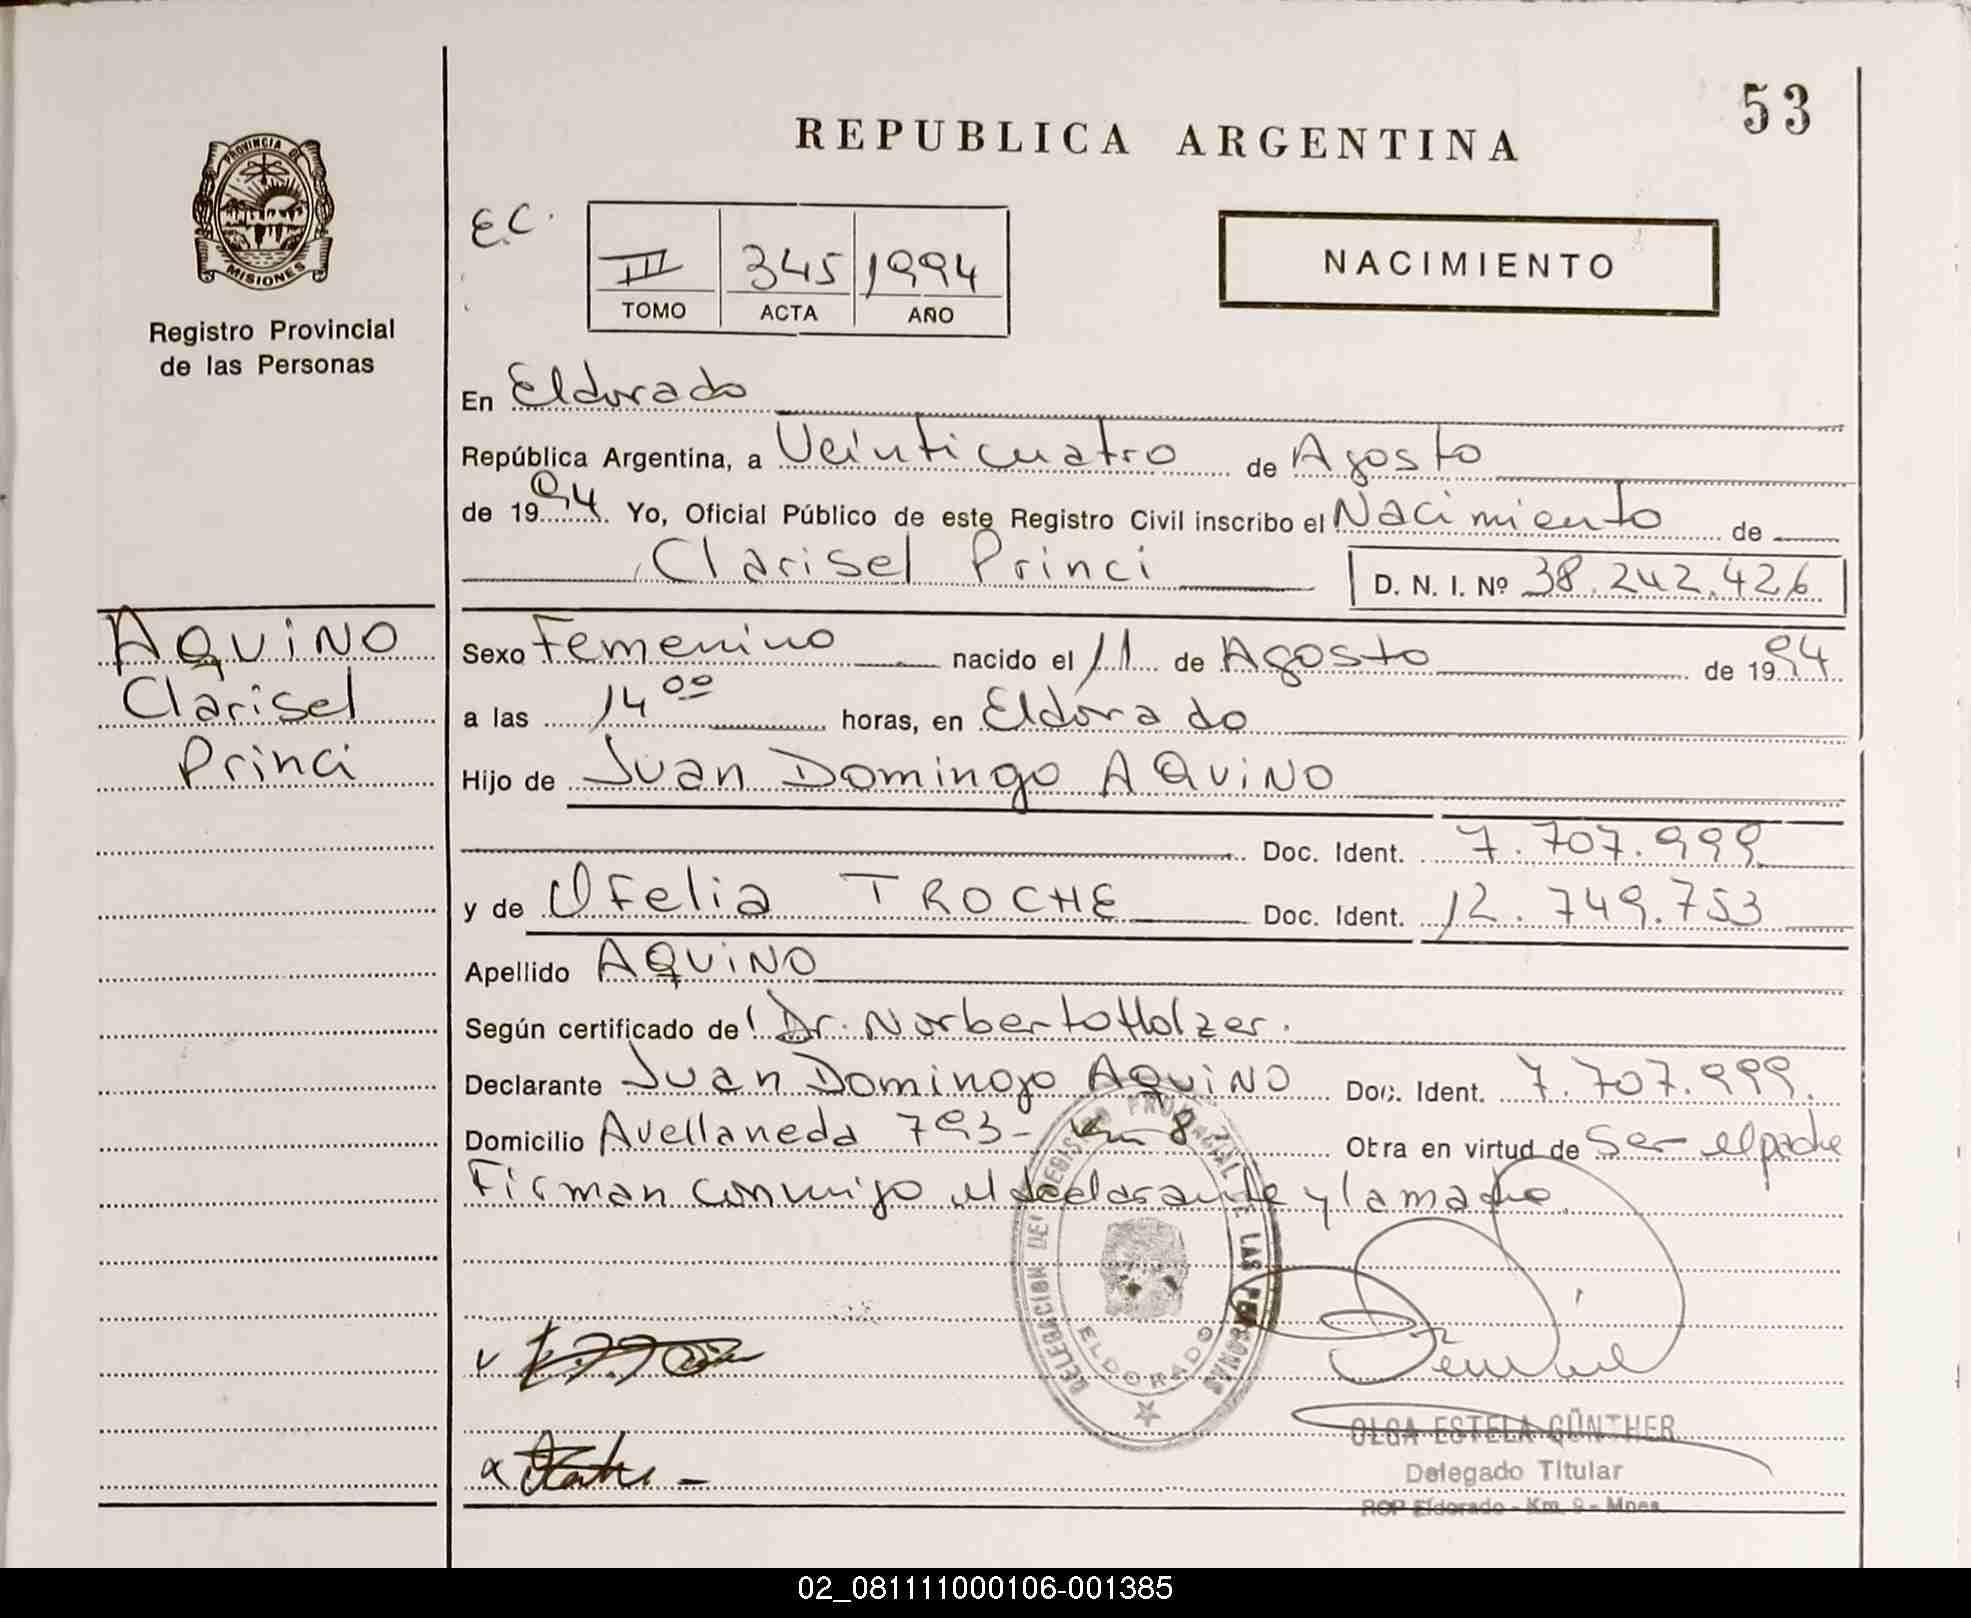 53
REPUBLICA ARGENTINA
PROVINCIA DE
MISIONES
Registro Provincial
de las Personas
E.C.
III 345 1994
TOMO ACTA AÑO
NACIMIENTO
En Eldorado
República Argentina, a Veinticuatro de Agosto
de 1994. Yo, Oficial Público de este Registro Civil inscribo el Nacimiento de
Clarisel Princi D. N. I. Nº 38.242.426
AQUINO
Clarisel
Princi
Sexo Femenino nacido el 11 de Agosto de 1994
a las 14 00 horas, en Eldorado
Hijo de Juan Domingo AQUINO
Doc. Ident. 7.707.999
y de Ofelia TROCHE Doc. Ident. 12.749.753
Apellido AQUINO
Según certificado de Dr. Norberto Holzer.
Declarante Juan Domingo AQUINO Doc. Ident. 7.707.999.
Domicilio Avellaneda 793- Km 8 Obra en virtud de Ser el padre
Firman conmigo el declarante y la madre.
DELEGACION DEL REGISTRO PROVINCIAL DE LAS PERSONAS
ELDORADO
OLGA ESTELA GÜNTHER
Delegado Titular
RCP Eldorado - Km. 9 - Mnes.
02_081111000106-001385